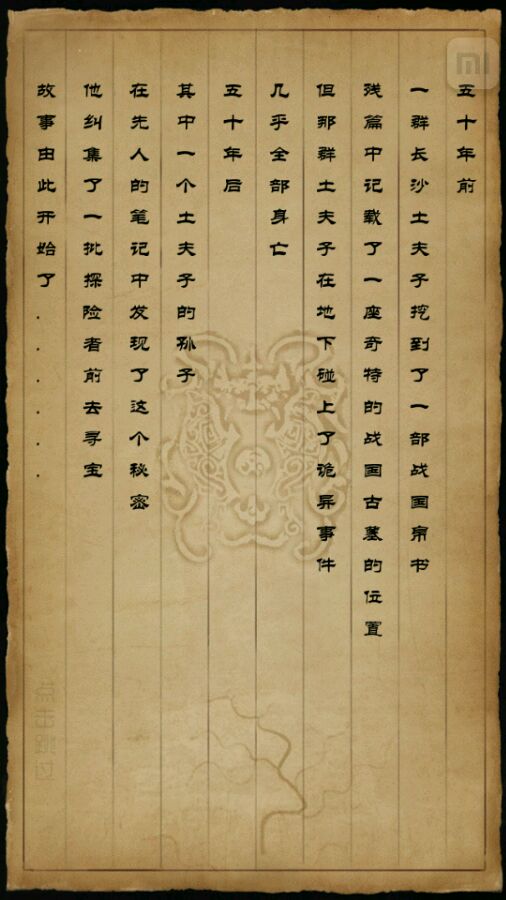 五十年前
一群长沙土夫子挖到了一部战国帛书
残篇中记载了一座奇特的战国古墓的位置
但那群土夫子在地下碰上了诡异事件
几乎全部身亡
五十年后
其中一个土夫子的孙子
在先人的笔记中发现了这个秘密
他纠集了一批探险者前去寻宝
故事由此开始了......
点击跳过
MI